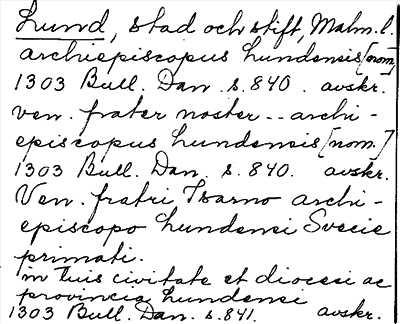 Lund, stad och stift, Malm. l.
archiepiscopus Lundensis [nom.]
1303 Bull. Dan. s. 840. avskr.
ven. frater noster -- archi-
episcopus Lundensis [nom.]
1303 Bull. Dan. s. 840. avskr.
Ven. fratri Isarno archi-
episcopo Lundensi Svecie
primati.
in tuis civitate et diocesi ac
provincia Lundensi
1303 Bull. Dan. s. 841. avskr.